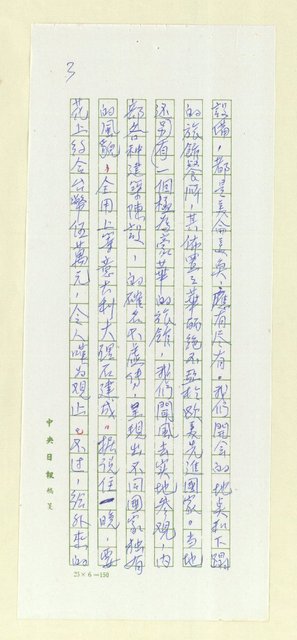 3
設備，都是美侖美奐，應有盡有。我們開會的地点和下蹋
的旅館餐廳，其佈置之華麗絕不亞於歐美先進國家。当地
还另有一個極為豪華的旅館，我們聞風去实地参观，內
部各种建築陳設，的確名不虛傳，呈現出不同國家独有
的風貌，全用上等意大利大理石建成。据说住一晚，要
花上約合台幣伍萬元，令人嘆为观止。不过，給外來的
中央日報稿箋
25×6=150